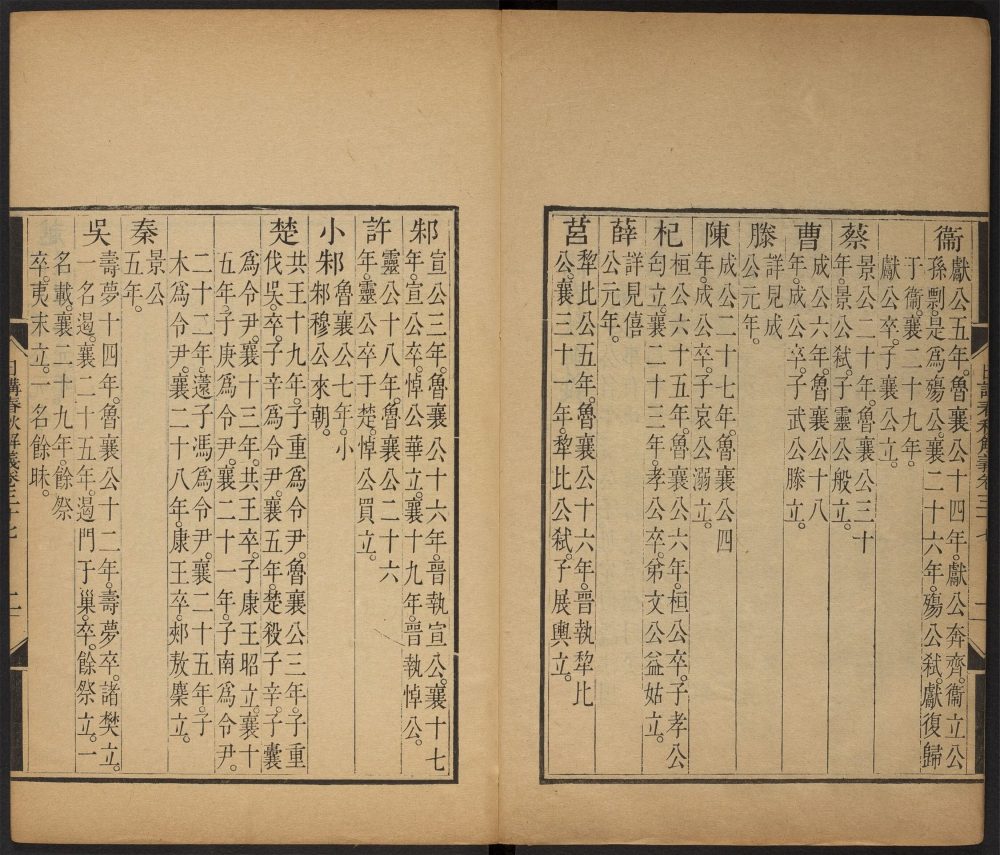 衞
獻公五年。魯襄公十四年。獻公奔齊。衞立公
孫剽。是爲殤公。襄二十六年。殤公弒。獻復歸
于衞。襄二十九年。
獻公卒。子襄公立。
蔡
景公二十年。魯襄公三十
年。景公弒。子靈公般立。
曹
成公六年。魯襄公十八
年。成公卒。子武公滕立。
滕
詳見成
公元年。
陳
成公二十七年。魯襄公四
年。成公卒。子哀公溺立。
杞
桓公六十五年。魯襄公六年。桓公卒。子孝公
匄立。襄二十三年。孝公卒。弟文公益姑立。
薛
詳見僖
公元年。
莒
犂比公五年。魯襄公十六年。晉執犂比
公。襄三十一年。犂比公弒。子展輿立。
邾
宣公三年。魯襄公十六年。晉執宣公。襄十七
年。宣公卒。悼公華立。襄十九年。晉執悼公。
許
靈公十八年。魯襄公二十六
年。靈公卒于楚。悼公買立。
小邾
魯襄公七年。小
邾穆公來朝。
楚
共王十九年。子重爲令尹。魯襄公三年。子重
伐吳。卒。子辛爲令尹。襄五年。楚殺子辛。子囊
爲令尹。襄十三年。共王卒。子康王昭立。襄十
五年。子庚爲令尹。襄二十一年。子南爲令尹。
二十二年。薳子馮爲令尹。襄二十五年。子
木爲令尹。襄二十八年。康王卒。郟敖麇立。
秦
景公
五年。
吳
壽夢十四年。魯襄公十二年。壽夢卒。諸樊立。
一名遏。襄二十五年。遏門于巢。卒。餘祭立。一
名戴。襄二十九年。餘祭
卒。夷末立。一名餘昧。
日講春秋解義卷三十七 二